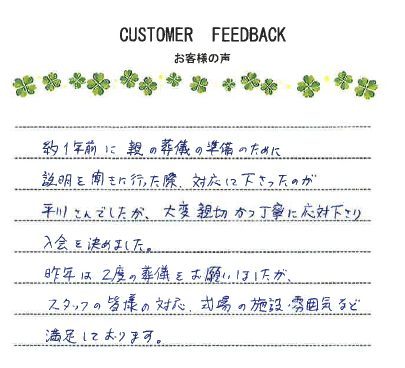 CUSTOMER FEEDBACK
お客様の声
約1年前に親の葬儀の準備のために
説明を聞きに行った際、対応して下さったのが
平川さんでしたが、大変親切かつ丁寧に応対下さり
入会を決めました。
昨年は2度の葬儀をお願いしましたが、
スタッフの皆様の対応、式場の施設・雰囲気など
満足しております。